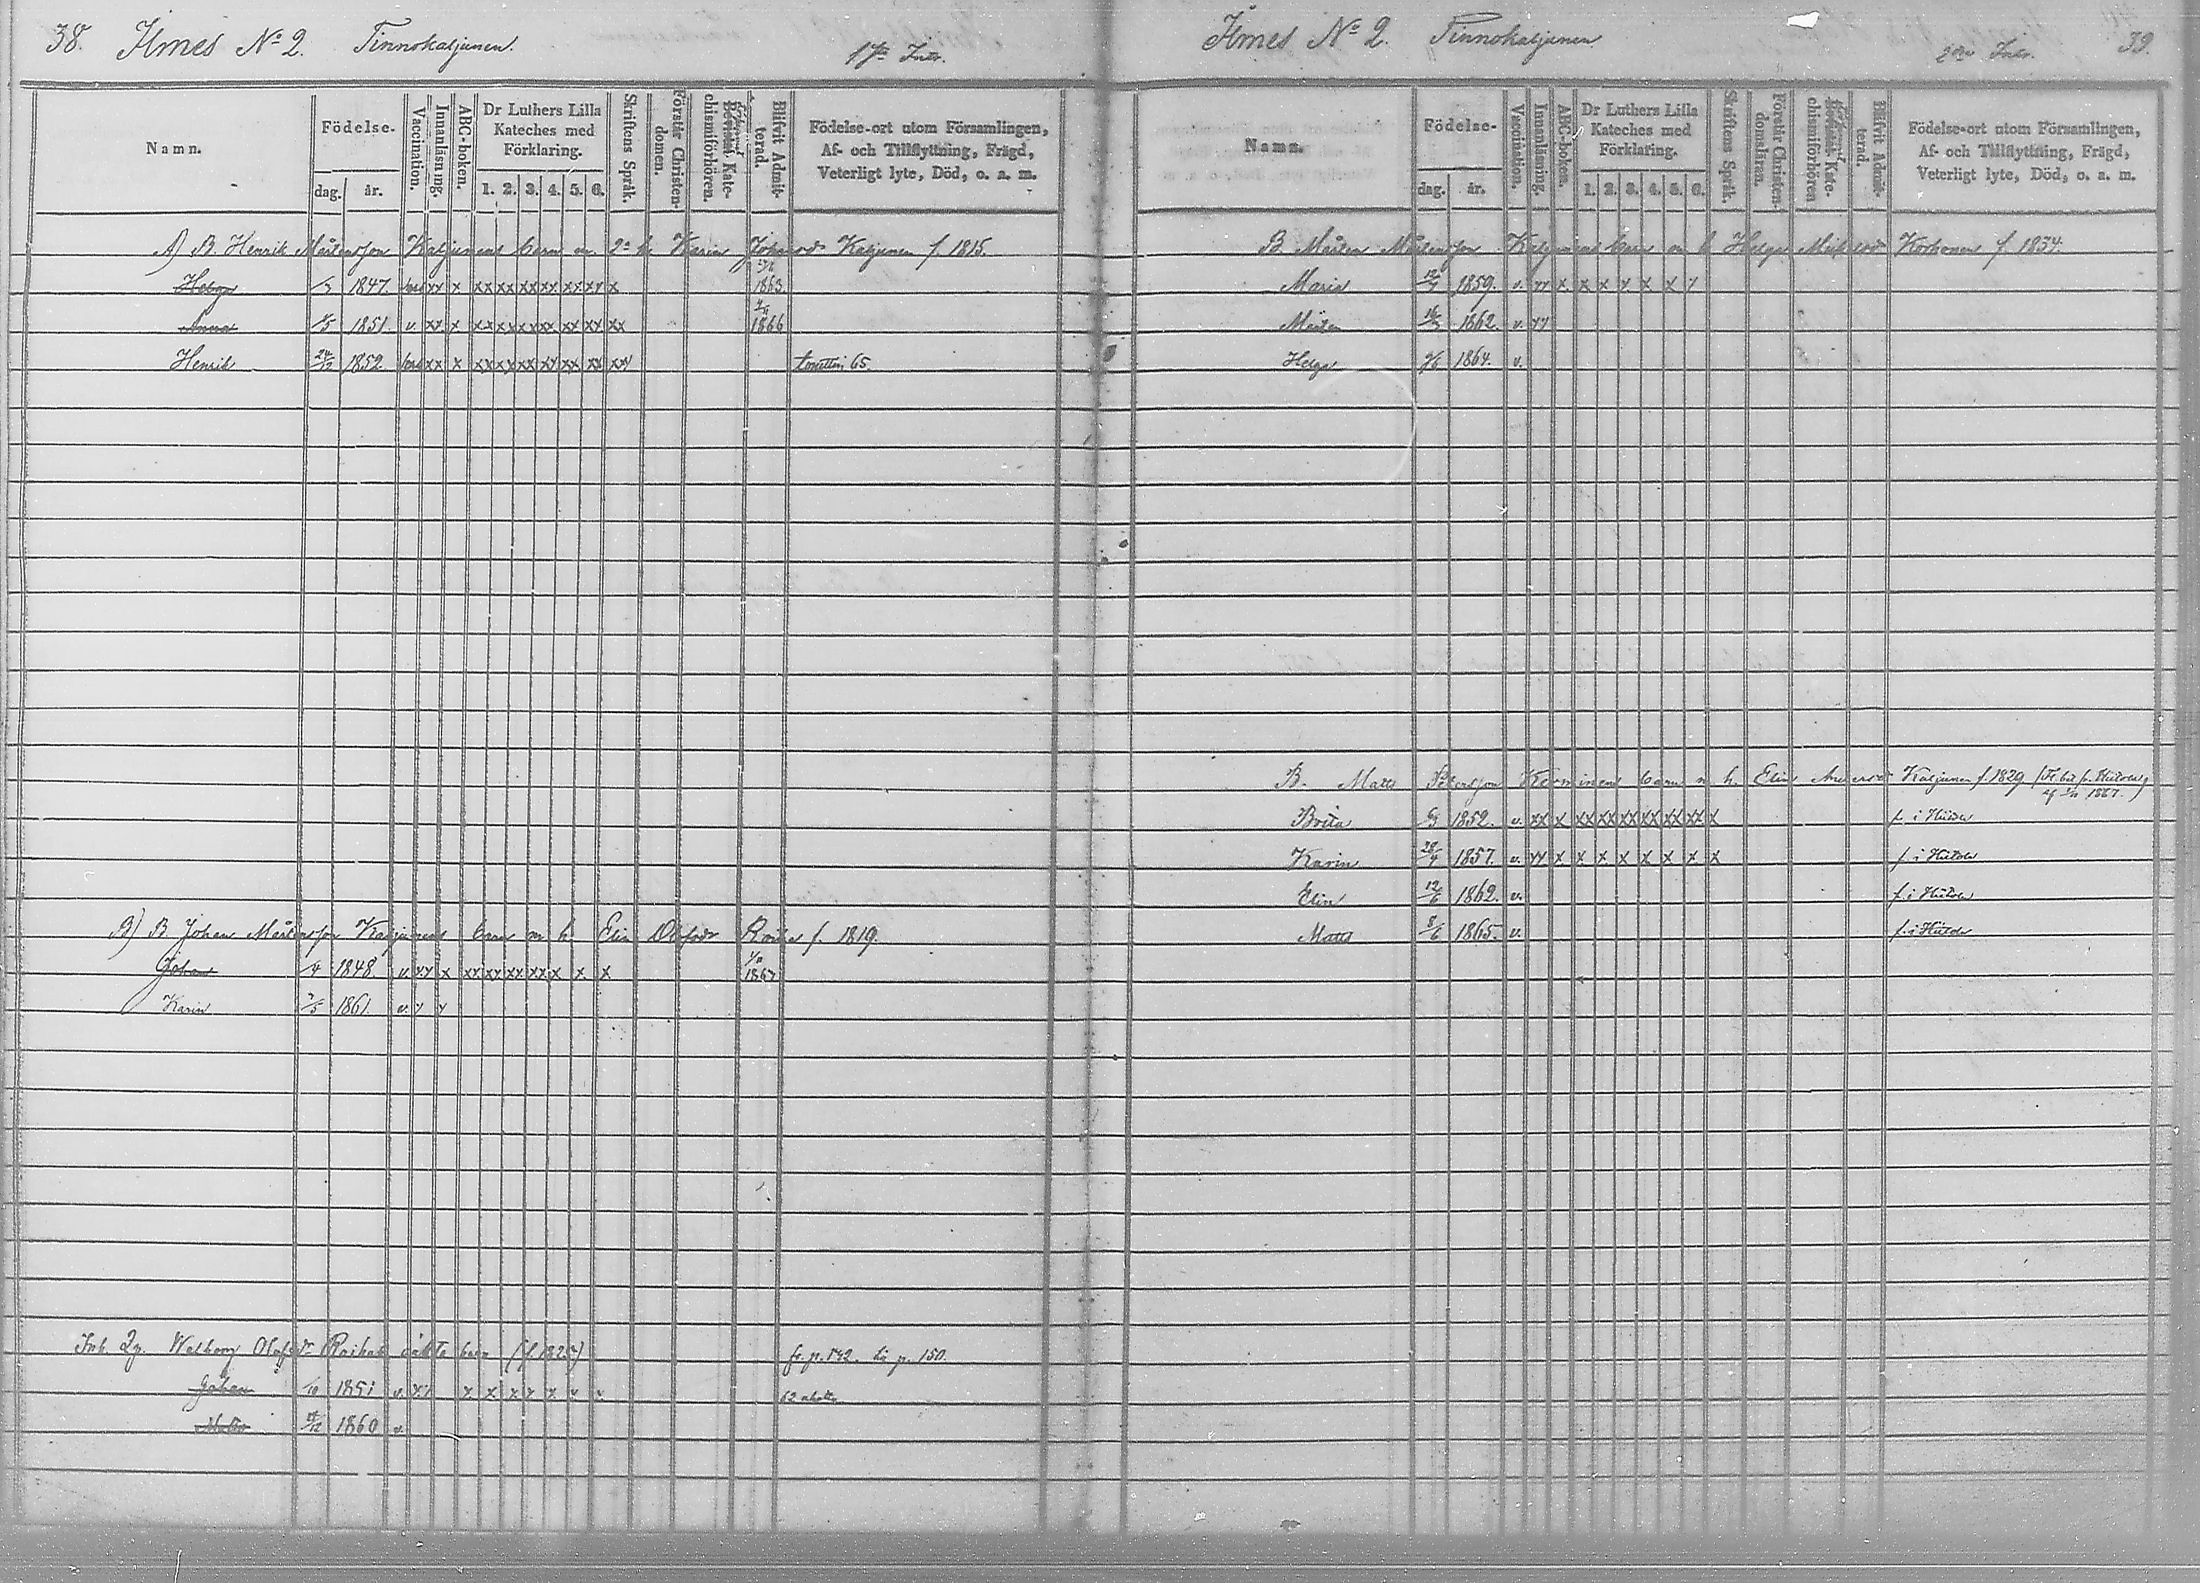 38. Ilmes No 2. Tinnokaljunen. 1sta Intr.
Namn.
Födelse-
dag. år.
Vaccination.
Innanläsning.
ABC-boken.
Dr Luthers Lilla
Kateches med
Förklaring.
1. 2. 3. 4. 5. 6.
Skriftens Språk.
Förstår Christen-
domen.
Bevistat Kate-
chismiförhören.
Blifvit Admit-
terad.
Födelse-ort utom Församlingen,
Af- och Tillflyttning, Frägd,
Veterligt lyte, Död, o. a. m.
A) B. Henrik Mårtensson Kaljunens barn m. 2a h. Karin Johansdr Kaljunen f. 1815.
Helga 1847. xx x xx xx xx xx xx xx x 1863.
Anna 1851. v. xx x xx xx xx xx xx xx xx 1866
Henrik 24/12 1852 xx x xx xx xx xx xx xx xx 65.
B) B. Johan Mårtensson Kaljunens barn m. h. Elin Olofsdr Raiha f. 1819.
Johan 1848 v. xx x xx xx xx xx x x x 1867
Karin 1861. v.
Inh. Walborg Olofsdr Raihas oäkta barn (f. 1825) fr. p. 142. till p. 150.
Johan /10 1851 v. x x x x x
Matts 1860 v.
Ilmes No 2. Tinnokaljunen 2dra Intr. 39.
Namn.
Födelse-
dag. år.
Vaccination.
Innanläsning.
ABC-boken.
Dr Luthers Lilla
Kateches med
Förklaring.
1. 2. 3. 4. 5. 6.
Skriftens Språk.
Förstår Christen-
domsläran.
Bevistat Kate-
chismiförhören
Blifvit Admit-
terad.
Födelse-ort utom Församlingen,
Af- och Tillflyttning, Frägd,
Veterligt lyte, Död, o. a. m.
B. Mårten Mårtensson Kaljunens barn m. h. Helga Michelsdr Korhonen f. 1834.
Maria 1859. v. xx x x x x x x
Mårten 1862. v. xx
Helga 9/6 1864. v.
B. Matts Petersson Kerminens barn m. h. Elin Andersdr Kaljunen f. 1829 1867.
Brita 1852. v. xx x xx xx xx xx xx xx x f. i Hiitola
Karin 28/4 1857. v. xx x x x x x x x x f. i Hiitola
Elin 12/6 1862. v. f. i Hiitola
Matts 8/6 1865. v. f. i Hiitola